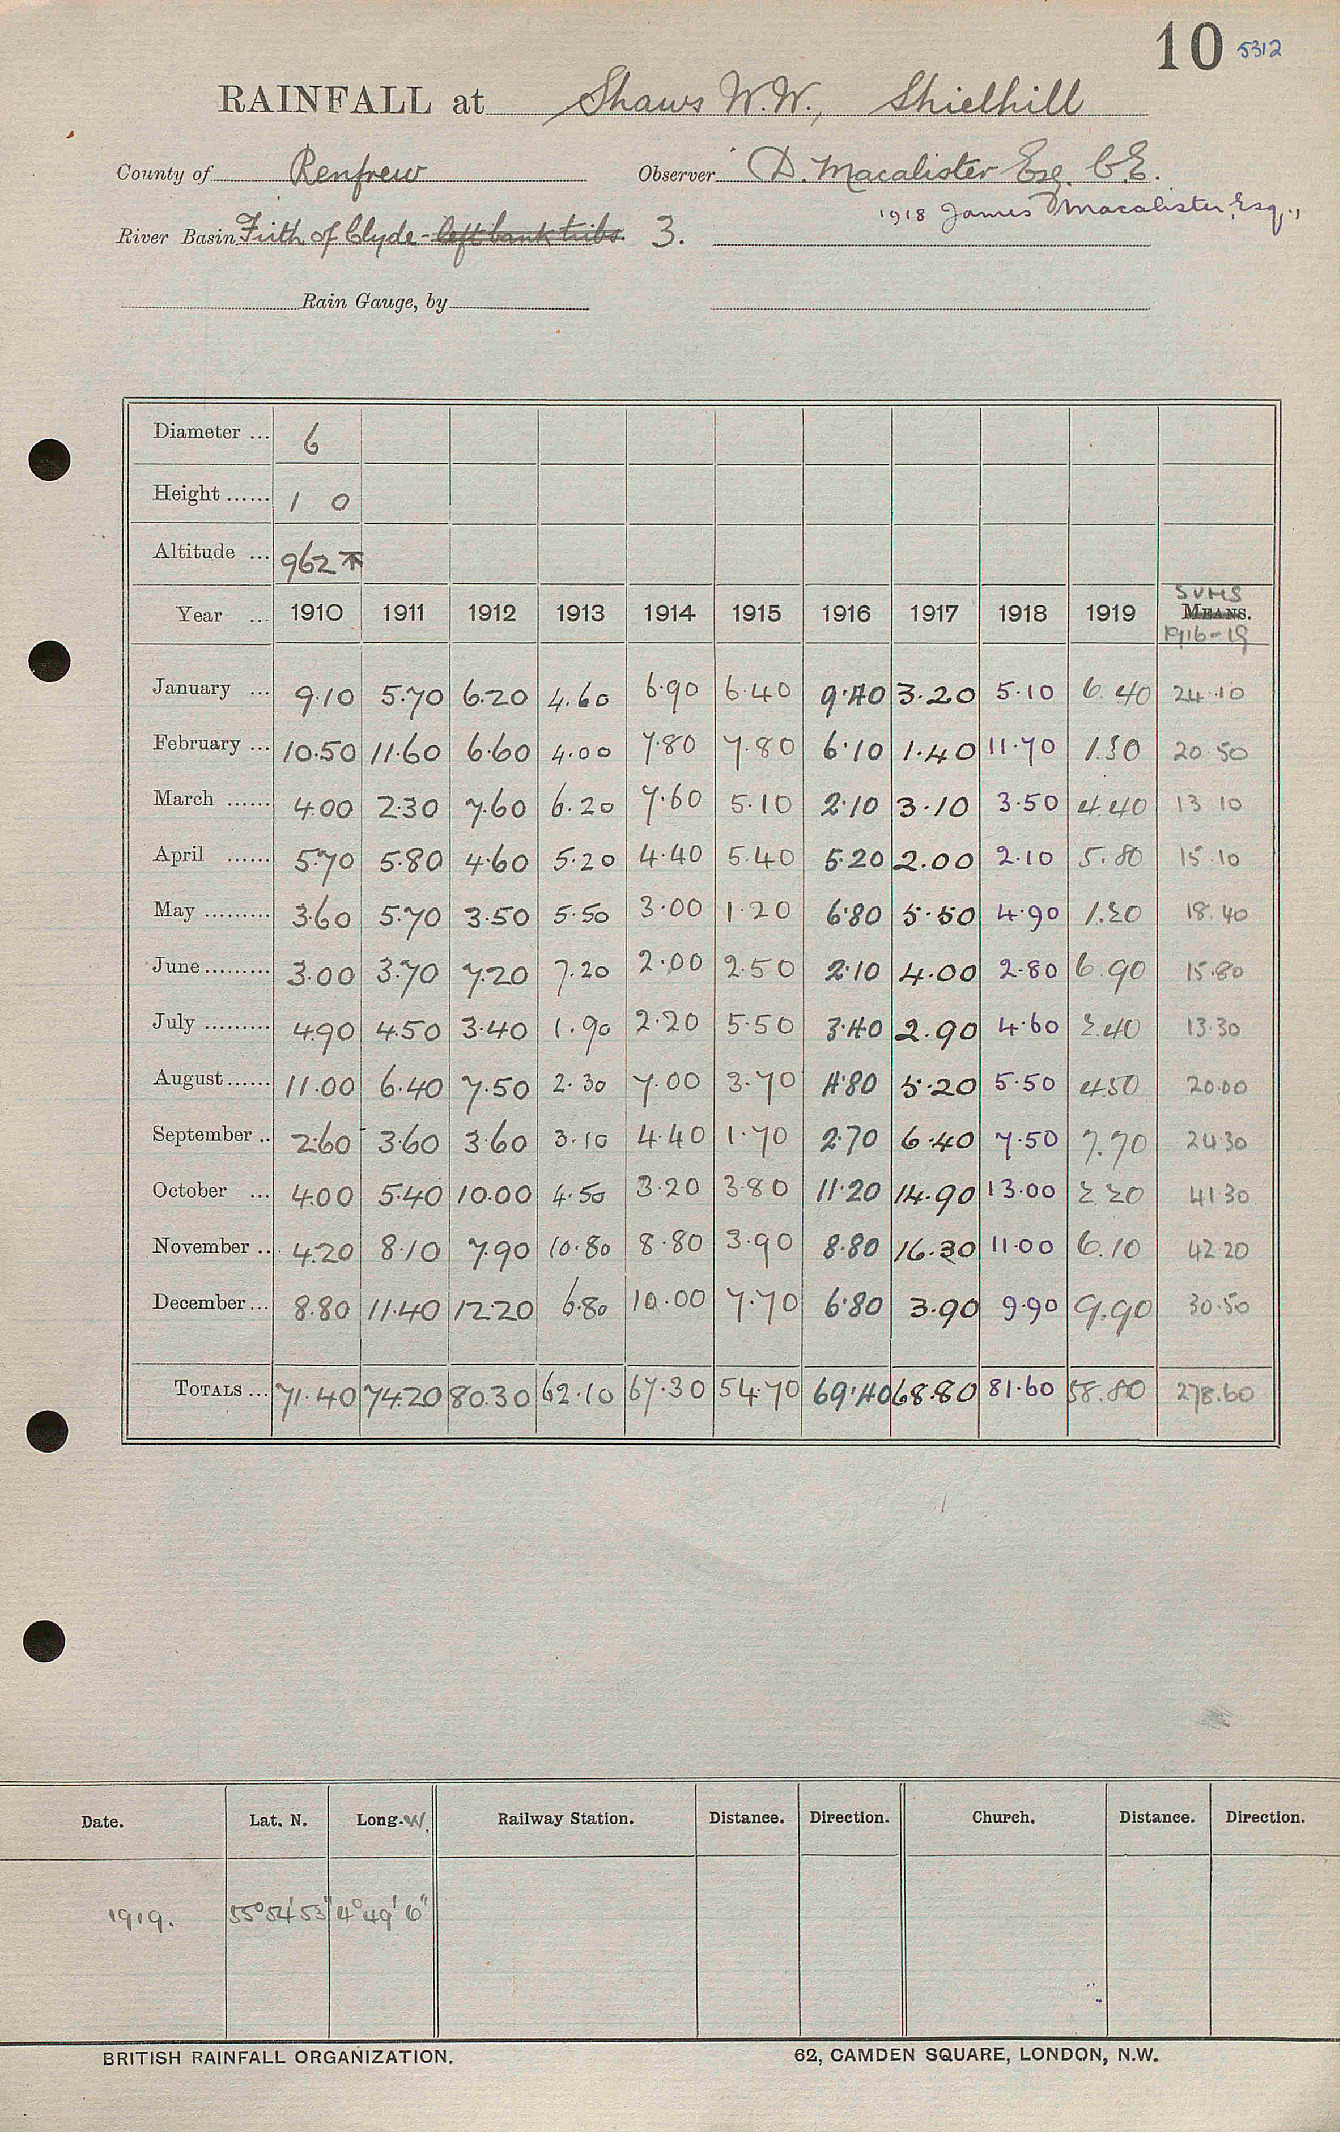 10 5312
RAINFALL at Shaws W.W., Shielhill
County of Renfrew Observer D. Macalister Esq. C.E.
1918 James Macalister, Esq.,
River Basin Firth of Clyde - left bank tribs. 3.
Rain Gauge, by
Diameter ... 6
Height ...... 1 0
Altitude ... 962 T
SUMS
Year ... 1910 1911 1912 1913 1914 1915 1916 1917 1918 1919 MEANS.
1916-19
January ... 9.10 5.70 6.20 4.60 6.90 6.40 9.40 3.20 5.10 6.40 24.10
February ... 10.50 11.60 6.60 4.00 7.80 7.80 6.10 1.40 11.70 1.30 20.50
March ...... 4.00 2.30 7.60 6.20 7.60 5.10 2.10 3.10 3.50 4.40 13 10
April ...... 5.70 5.80 4.60 5.20 4.40 5.40 5.20 2.00 2.10 5.80 15.10
May ......... 3.60 5.70 3.50 5.50 3.00 1.20 6.80 5.50 4.90 1.20 18.40
June ......... 3.00 3.70 7.20 7.20 2.00 2.50 2.10 4.00 2.80 6.90 15.80
July ......... 4.90 4.50 3.40 1.90 2.20 5.50 3.40 2.90 4.60 2.40 13.30
August ...... 11.00 6.40 7.50 2.30 7.00 3.70 4.80 5.20 5.50 4.50 20.00
September .. 2.60 3.60 3.60 3.10 4.40 1.70 2.70 6.40 7.50 7.70 24.30
October ... 4.00 5.40 10.00 4.50 3.20 3.80 11.20 14.90 13.00 2.20 41.30
November .. 4.20 8.10 7.90 10.80 8.80 3.90 8.80 16.30 11.00 6.10 42.20
December ... 8.80 11.40 12.20 6.80 10.00 7.70 6.80 3.90 9.90 9.90 30.50
TOTALS ... 71.40 74.20 80.30 62.10 67.30 54.70 69.40 68.80 81.60 58.80 278.60
Date. Lat. N. Long. W. Railway Station. Distance. Direction. Church. Distance. Direction.
1919. 55° 54' 53" 4° 49' 6"
BRITISH RAINFALL ORGANIZATION. 62, CAMDEN SQUARE, LONDON, N.W.